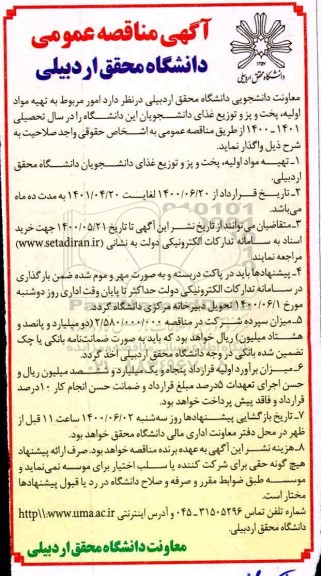 آگهی مناقصه عمومی
دانشگاه محقق اردبیلی
۱۳۵۷
دانشگاه محقق اردبیلی
معاونت دانشجویی دانشگاه محقق اردبیلی درنظر دارد امور مربوط به تهیه مواد
اولیه، پخت و پز و توزیع غذای دانشجویان این دانشگاه را در سال تحصیلی
۱۴۰۱-۱۴۰۰ از طریق مناقصه عمومی به اشخاص حقوقی واجد صلاحیت به
شرح ذیل واگذار نماید.
۱- تهیه مواد اولیه، پخت و پز و توزیع غذای دانشجویان دانشگاه محقق
اردبیلی.
۲- تاریخ قرارداد از ۱۴۰۰/۰۶/۲۰ لغایت ۱۴۰۱/۰۴/۲۰ به مدت ده ماه
می‌باشد.
۳- متقاضیان می‌توانند از تاریخ نشر این آگهی تا تاریخ ۱۴۰۰/۰۵/۲۱ جهت خرید
اسناد به سامانه تدارکات الکترونیکی دولت به نشانی (www.setadiran.ir)
مراجعه نمایند.
۴- پیشنهادها باید در پاکت دربسته و به صورت مهر و موم شده ضمن بارگذاری
در سامانه تدارکات الکترونیکی دولت حداکثر تا پایان وقت اداری روز دوشنبه
مورخ ۱۴۰۰/۰۶/۱ تحویل دبیرخانه مرکزی دانشگاه گردد.
۵- میزان سپرده شرکت در مناقصه ۲/۵۸۰/۰۰۰/۰۰۰ (دو میلیارد و پانصد و
هشتاد میلیون) ریال خواهد بود که باید به صورت ضمانت‌نامه بانکی یا چک
تضمین شده بانکی در وجه دانشگاه محقق اردبیلی اخذ گردد.
۶- میزان برآورد اولیه قرارداد پنجاه و یک میلیارد و ششصد میلیون ریال و
حسن اجرای تعهدات ۵درصد مبلغ قرارداد و ضمانت حسن انجام کار ۱۰درصد
قرارداد و فاقد پیش پرداخت خواهد بود.
۷- تاریخ بازگشایی پیشنهادها روز سه‌شنبه ۱۴۰۰/۰۶/۰۲ ساعت ۱۱ قبل از
ظهر در محل دفتر معاونت اداری مالی دانشگاه محقق خواهد بود.
۸- هزینه نشر این آگهی به عهده برنده مناقصه خواهد بود. صرف ارائه پیشنهاد
هیچ گونه حقی برای شرکت کننده یا سلب اختیار برای موسسه نمی‌نماید و
موسسه طبق ضوابط مقرر و صرفه و صلاح دانشگاه در رد یا قبول پیشنهادها
مختار است.
شماره تلفن تماس ۳۱۵۰۵۲۹۶-۰۴۵ و آدرس اینترنتی http\\:www.uma.ac.ir
دانشگاه محقق اردبیلی.
معاونت دانشگاه محقق اردبیلی